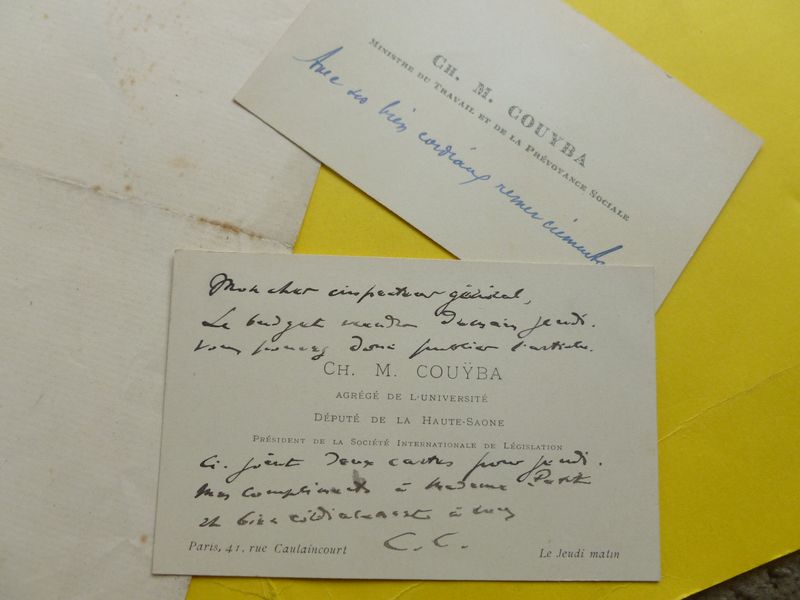 CH. M. COUYBA
MINISTRE DU TRAVAIL ET DE LA PRÉVOYANCE SOCIALE
Avec ses bien cordiaux remerciements
Mon cher inspecteur général,
Le budget viendra demain jeudi.
Vous pouvez donc publier l'article.
CH. M. COUŸBA
AGRÉGÉ DE L'UNIVERSITÉ
DÉPUTÉ DE LA HAUTE-SAONE
PRÉSIDENT DE LA SOCIÉTÉ INTERNATIONALE DE LÉGISLATION
Ci-joint deux cartes pour jeudi.
Mes compliments à Madame
et bien cordialement à vous
C. C.
Paris, 41, rue Caulaincourt
Le Jeudi matin